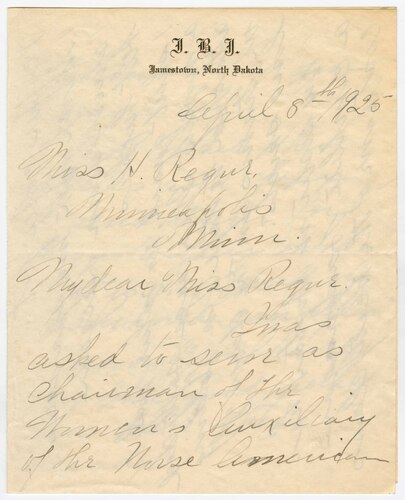 I. B. I.
Jamestown, North Dakota
April 8th, 1925
Miss H. Regur,
Minneapolis
Minn.
My dear Miss Regur.
I was
asked to serve as
Chairman of the
Women's Auxiliary
of the Norse American